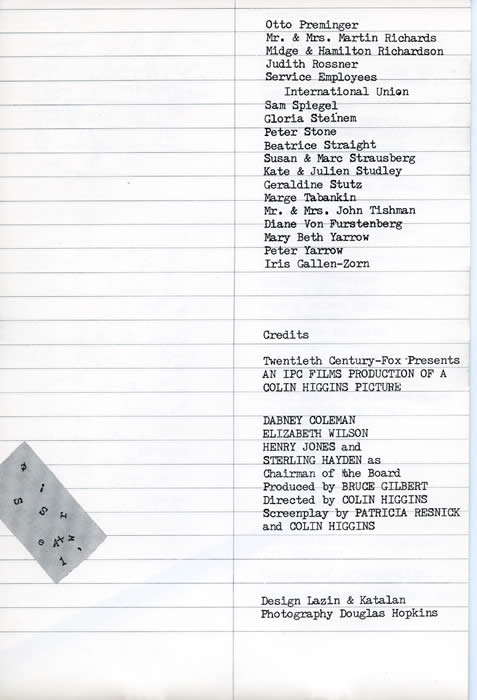 Otto Preminger
Mr. & Mrs. Martin Richards
Midge & Hamilton Richardson
Judith Rossner
Service Employees
International Union
Sam Spiegel
Gloria Steinem
Peter Stone
Beatrice Straight
Susan & Marc Strausberg
Kate & Julien Studley
Geraldine Stutz
Marge Tabankin
Mr. & Mrs. John Tishman
Diane Von Furstenberg
Mary Beth Yarrow
Peter Yarrow
Iris Gallen-Zorn
Credits
Twentieth Century-Fox Presents
AN IPC FILMS PRODUCTION OF A
COLIN HIGGINS PICTURE
DABNEY COLEMAN
ELIZABETH WILSON
HENRY JONES and
STERLING HAYDEN as
Chairman of the Board
Produced by BRUCE GILBERT
Directed by COLIN HIGGINS
Screenplay by PATRICIA RESNICK
and COLIN HIGGINS
Design Lazin & Katalan
Photography Douglas Hopkins